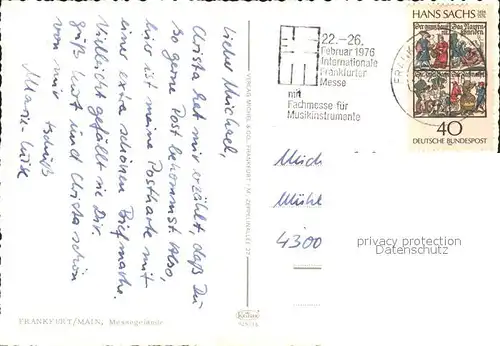 Lieber Michael,
Christa hat mir erzählt, daß Du
so gerne Post bekommst. Also,
hier ist meine Postkarte mit
einer extra schönen Briefmarke.
Vielleicht gefällt sie Dir.
Grüß Kurt und Christa schön
von mir tschüß
Marie-Luise
FRANKFURT/MAIN, Messegelände
VERLAG MICHEL & CO., FRANKFURT/M.
22.–26.
Februar 1976
Internationale
Frankfurter
Messe
mit
Fachmesse für
Musikinstrumente
HANS SACHS
40
DEUTSCHE BUNDESPOST
Mich
Mühl
4300
privacy protection
Datenschutz